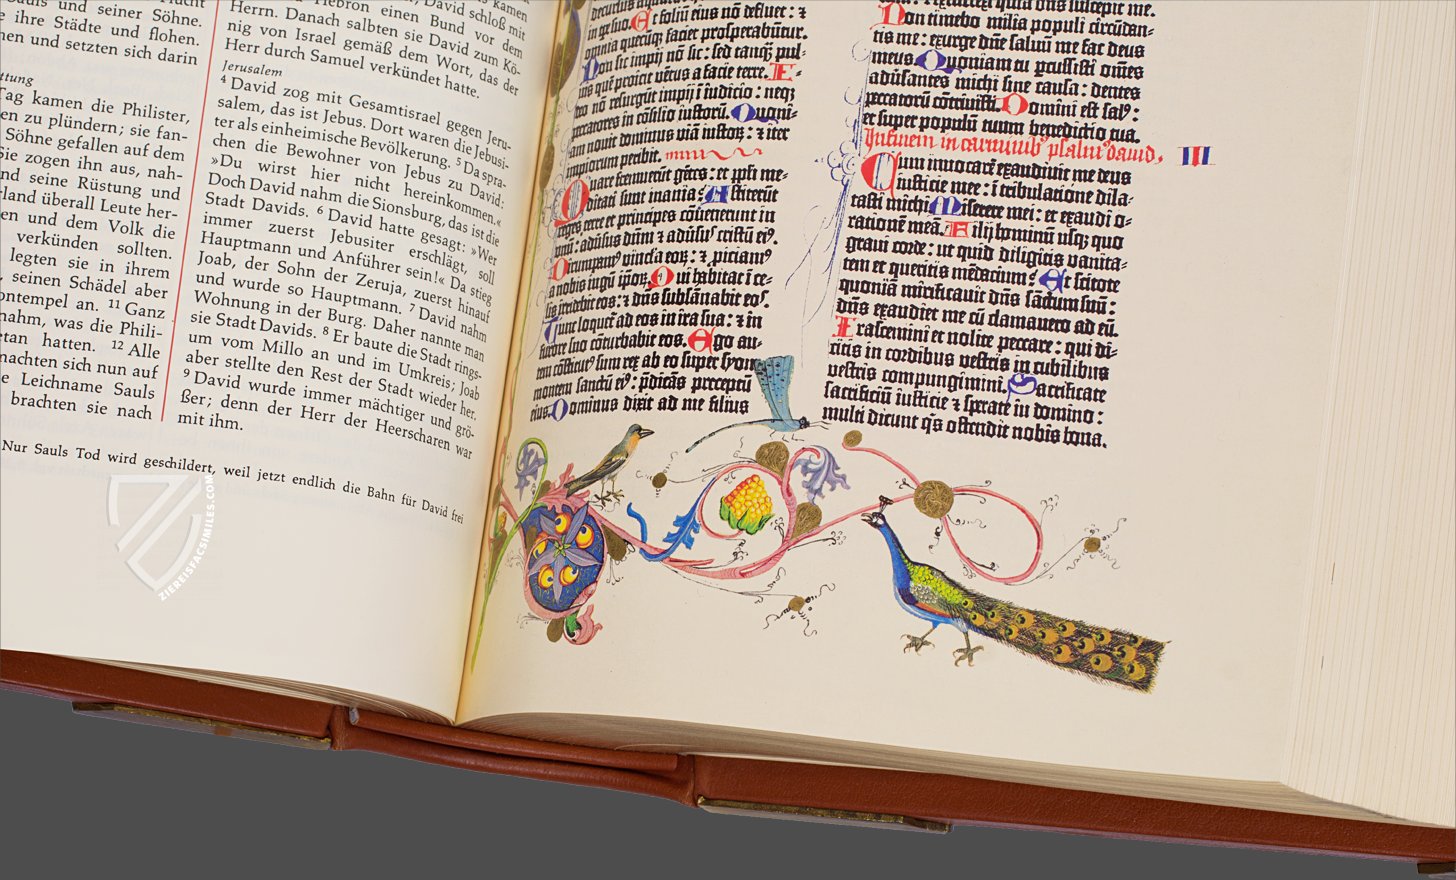 und seiner Söhne.
ihre Städte und flohen.
en und setzten sich darin
Tag kamen die Philister,
zu plündern; sie fan-
Söhne gefallen auf dem
Sie zogen ihn aus, nah-
und seine Rüstung und
überall Leute her-
und dem Volk die
verkünden sollten.
legten sie in ihrem
seinen Schädel aber
an. 11 Ganz
was die Phili-
hatten. 12 Alle
machten sich nun auf
Leichname Sauls
brachten sie nach
Hebron einen Bund vor dem
Herrn. Danach salbten sie David zum Kö-
nig von Israel gemäß dem Wort, das der
Herr durch Samuel verkündet hatte.
Jerusalem
4 David zog mit Gesamtisrael gegen Jeru-
salem, das ist Jebus. Dort waren die Jebusi-
ter als einheimische Bevölkerung. 5 Da spra-
chen die Bewohner von Jebus zu David:
»Du wirst hier nicht hereinkommen.«
Doch David nahm die Sionsburg, das ist die
Stadt Davids. 6 David hatte gesagt: »Wer
immer zuerst Jebusiter erschlägt, soll
Hauptmann und Anführer sein!« Da stieg
Joab, der Sohn der Zeruja, zuerst hinauf
und wurde so Hauptmann. 7 David nahm
Wohnung in der Burg. Daher nannte man
sie Stadt Davids. 8 Er baute die Stadt rings-
um vom Millo an und im Umkreis; Joab
aber stellte den Rest der Stadt wieder her.
9 David wurde immer mächtiger und grö-
ßer; denn der Herr der Heerscharen war
mit ihm.
Nur Sauls Tod wird geschildert, weil jetzt endlich die Bahn für David frei
ZIEREISFACSIMILES.COM
in tp̄e suo. Et foliū eius nō defluet: ⁊
omnia quecūq; faciet prosperabūtur.
Non sic impij nō sic: sed tanq̄ pul-
uis quē proicit vētus a facie terre. E-
o nō resurgūt impij ī iudicio: neq;
peccatores in cōsilio iustorū. Quoni-
am nouit dominus viā iustoꝝ: ⁊ iter
impiorum peribit.
Quare fremuerūt gētes: et ppli me-
ditati sunt inania? Astiterūt
reges terre et principes cōuenerunt in
vnū: adūsus dn̄m ⁊ adūsꝰ cristū eiꝰ.
Dirumpamꝰ vincla eoꝝ: ⁊ piciamꝰ
a nobis iugū ip̄oꝝ. Qui habitat ī ce-
lis irridebit eos: ⁊ dn̄s subsānabit eoſ.
Tunc loquet ad eos in ira sua: ⁊ in
furore suo cōturbabit eos. Ego au-
tem cōstitutꝰ sum rex ab eo super syon
montem sanctū eiꝰ: p̄dicās preceptū
eius. Dominus dixit ad me filius
Non timebo milia populi circūdan-
tis me: exurge dn̄e saluū me fac deus
meus. Quoniam tu p̄cussisti om̄es
adūsantes michi sine causa: dentes
peccatorū cōtriuisti. Domini est salꝰ:
et super populū tuum benedictio tua.
In finem in carminibꝰ psalmꝰ dauid. III
Cum inuocarē exaudiuit me deus
iusticie mee: ī tribulatione dila-
tasti michi. Miserere mei: et exaudi o-
rationē meā. Filij hominū usq; quo
graui corde: ut quid diligitis vanita-
tem et queritis mēdacium? Et scitote
quoniā mirificauit dn̄s sāctum suū:
dn̄s exaudiet me cū clamauero ad eū.
Irascemini et nolite peccare: qui di-
citis in cordibus vestris in cubilibus
vestris compungimini. Sacrificate
sacrificiū iusticie ⁊ sperate in domino:
multi dicunt q̄s ostendit nobis bona.